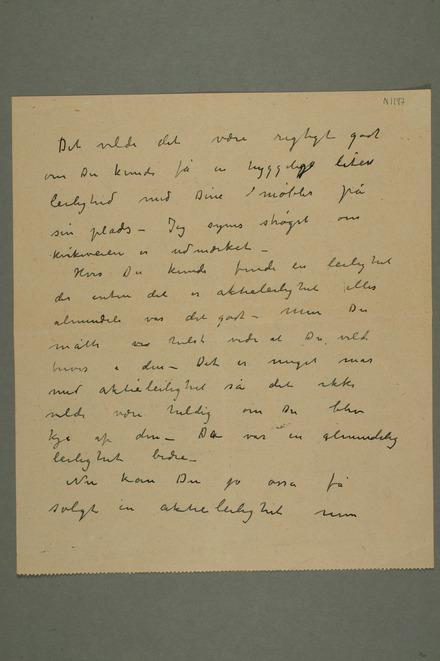 N 1197
Det vilde det være rigtigt godt
om Du kunde få en hyggelig liten
leilighed med Dine møbler på
sin plads – Jeg synes strøget om
kirkeveien er udmærket –
Hvis Du kunde finde en leilighet
der enten det er aktieleilighet eller
almindeli var det godt – men Du
måtte helst vide at Du vilde
i den – Det er meget mas
med aktieleilighet så det ikke
vilde være heldig om Du blev
kje af den – Da var en almindelig
leilighet bedre –
Nu kan Du jo ossa få
solgt en aktieleilighet men